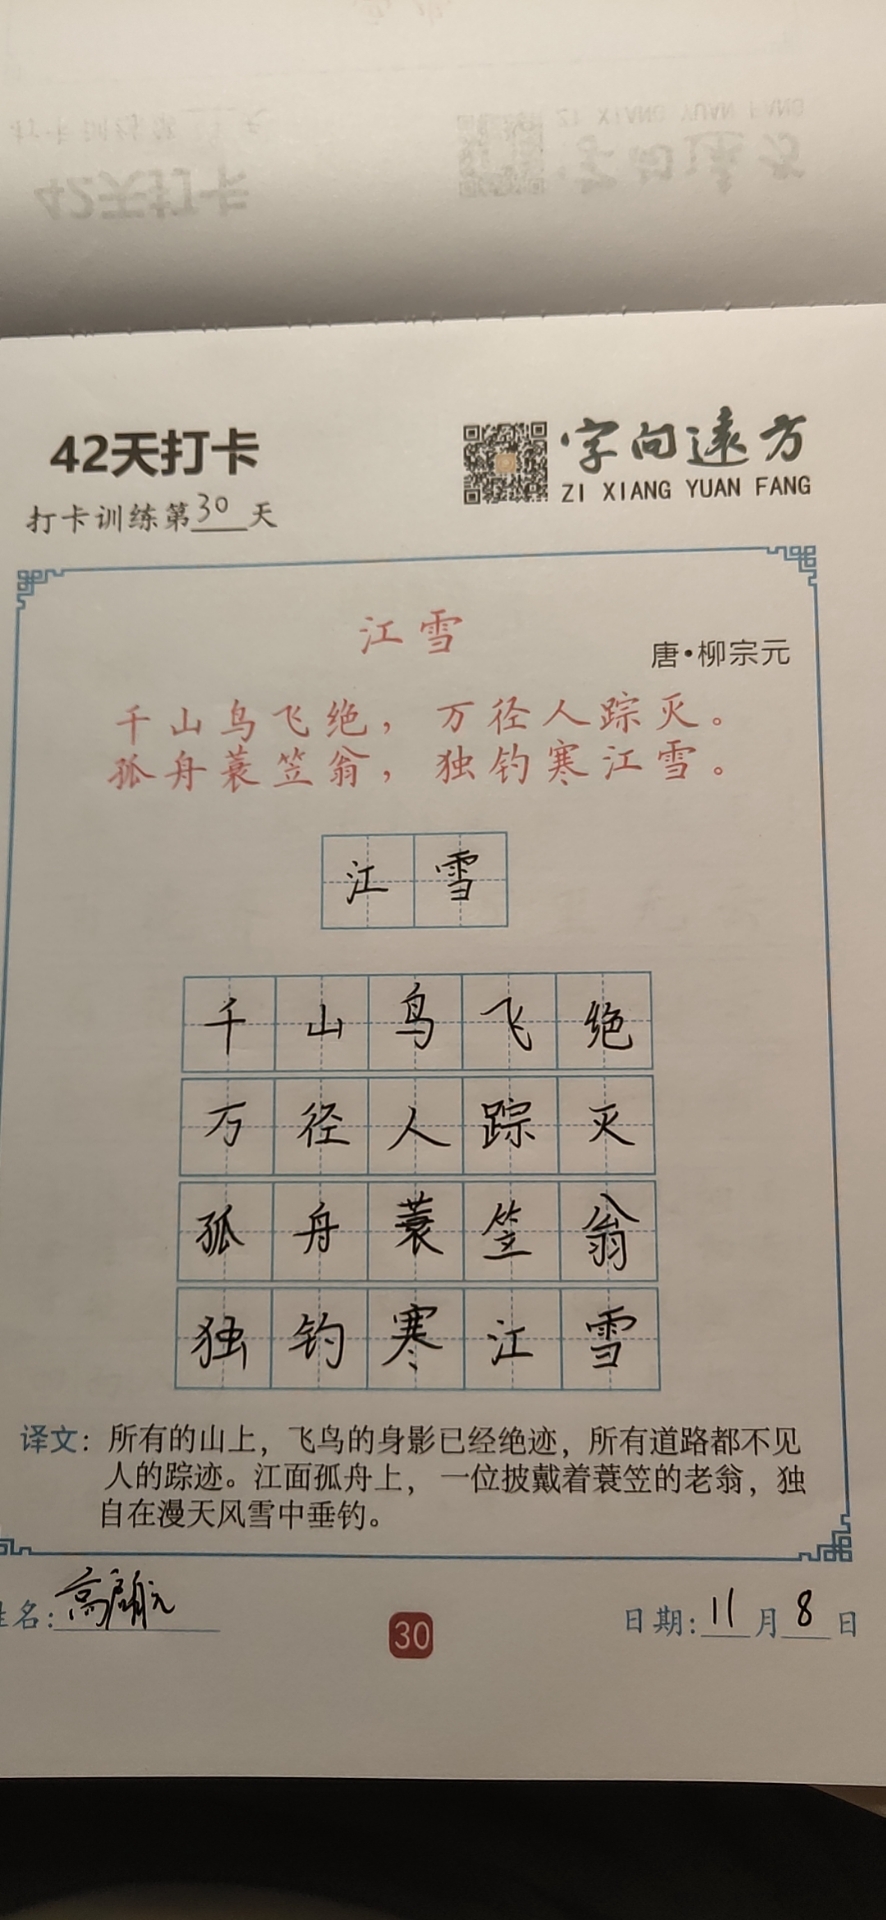 42天打卡
字向远方
ZI XIANG YUAN FANG
打卡训练第30天
江雪
唐·柳宗元
千山鸟飞绝，万径人踪灭。
孤舟蓑笠翁，独钓寒江雪。
江雪
千山鸟飞绝
万径人踪灭
孤舟蓑笠翁
独钓寒江雪
译文：所有的山上，飞鸟的身影已经绝迹，所有道路都不见
人的踪迹。江面孤舟上，一位披戴着蓑笠的老翁，独
自在漫天风雪中垂钓。
姓名：高
30
日期：11月8日